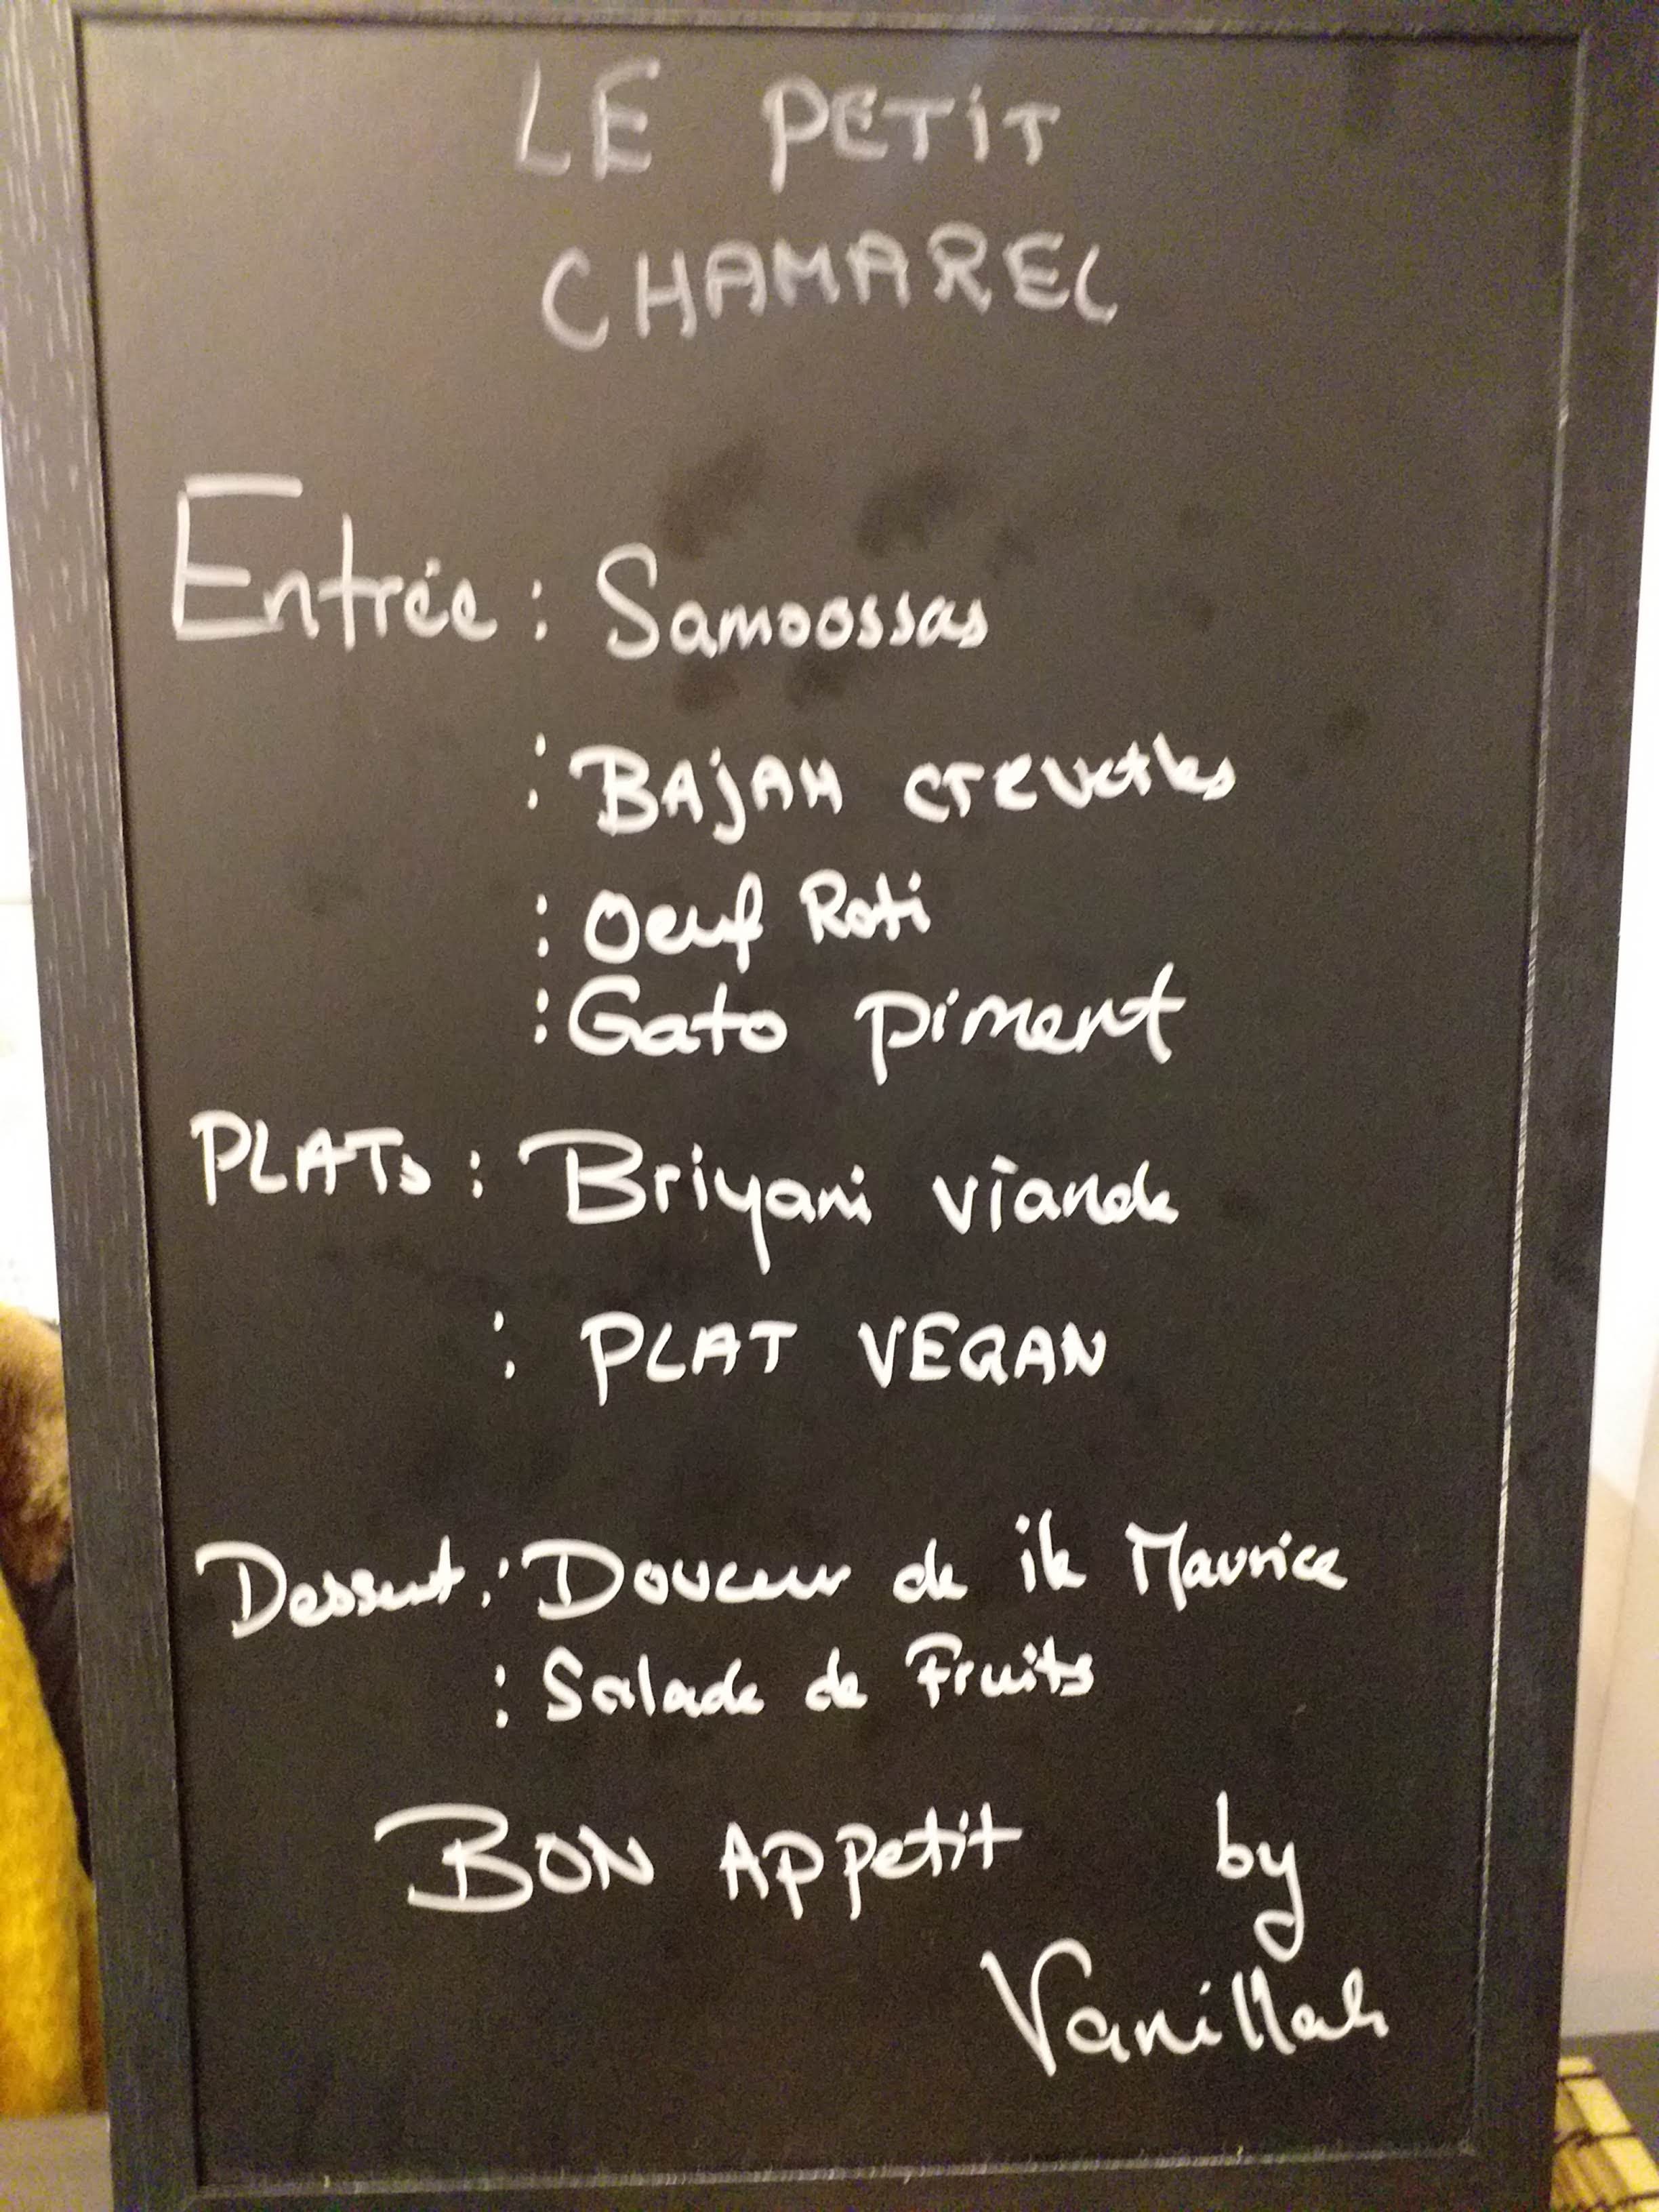 LE PETIT
CHAMAREL
Entrée : Samoossas
: BAJAH crevettes
: Oeuf Roti
: Gato piment
PLATs : Briyani viande
: PLAT VEGAN
Dessert : Douceur de ile Maurice
: Salade de Fruits
BON Appetit by
Vanillah